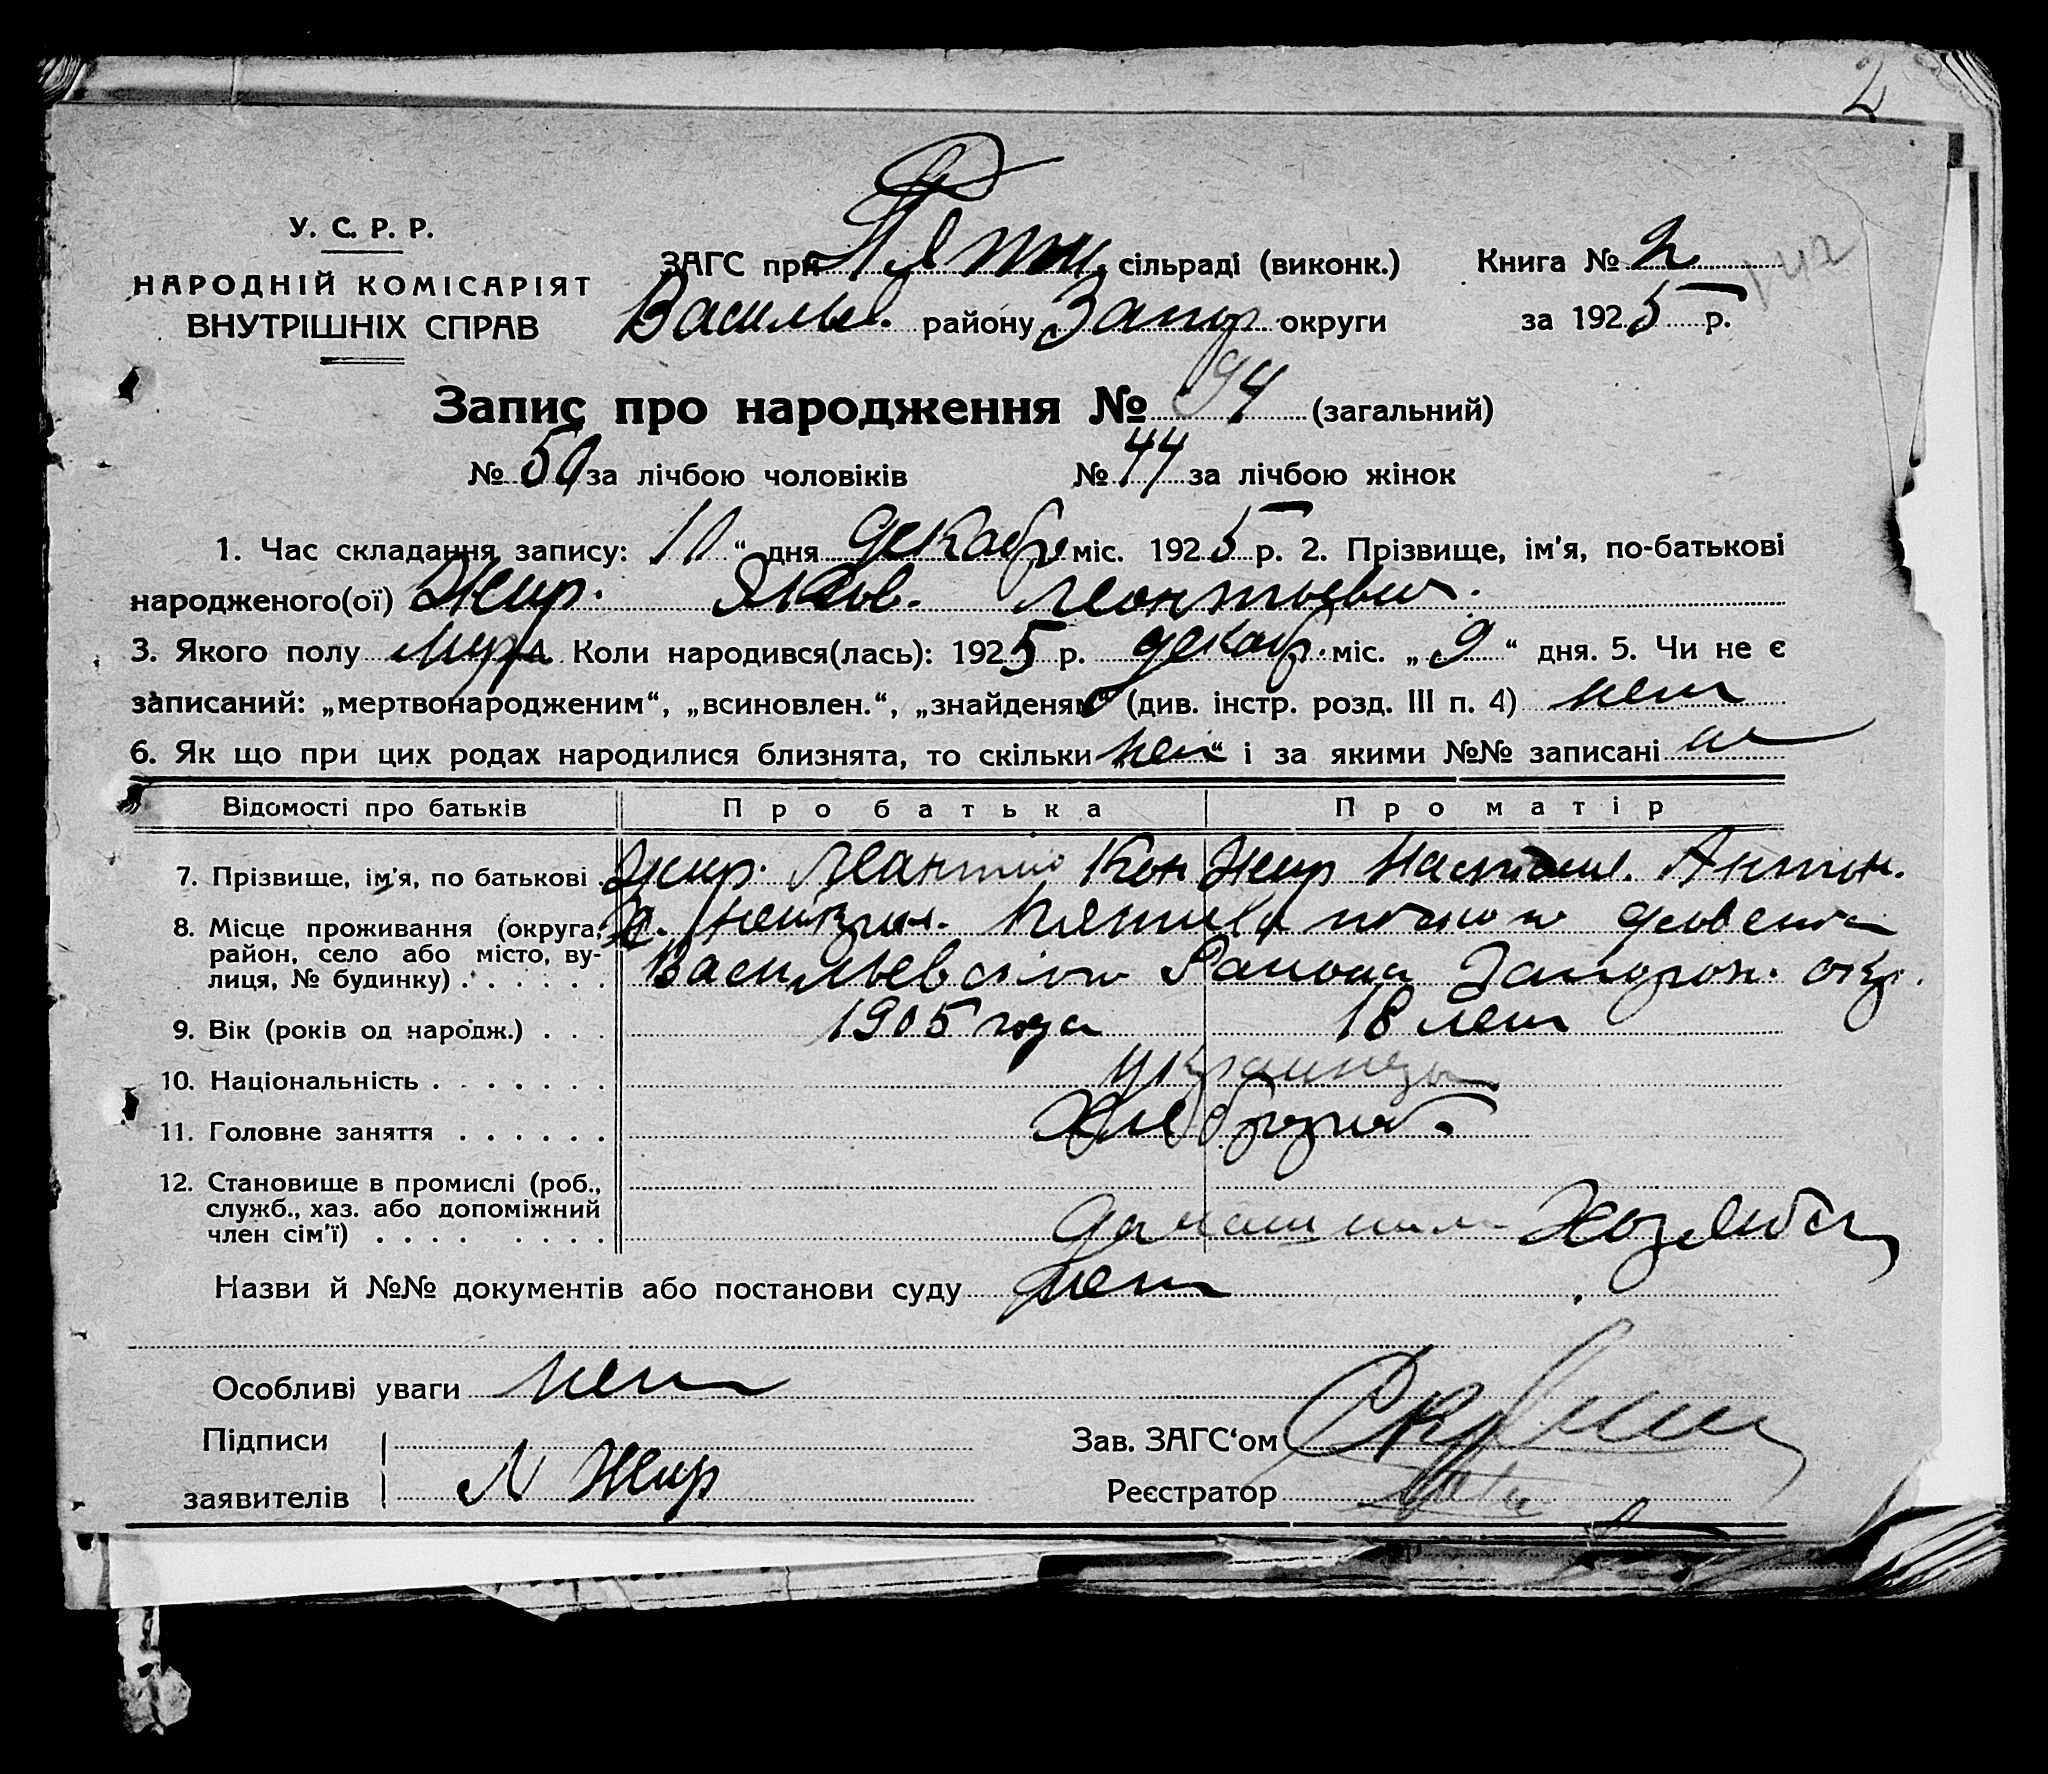 2
У. С. Р. Р.
НАРОДНІЙ КОМІСАРІЯТ
ВНУТРІШНІХ СПРАВ
ЗАГС при Пяти сільраді (виконк.) Книга № 2
Васильев. району Запор округи за 1925 р.
142
Запис про народження № 94 (загальний)
№ 50 за лічбою чоловіків № 44 за лічбою жінок
1. Час складання запису: 10 “ дня декабр міс. 1925 р. 2. Прізвище, ім'я, по-батькові
народженого(ої) Жир. Яков. Леонтьевич.
3. Якого полу Муж 4. Коли народився(лась): 1925 р. декабр. міс. „ 9 “ дня. 5. Чи не є
записаний: „мертвонародженим“, „всиновлен.“, „знайденям“ (див. інстр. розд. III п. 4) нет
6. Як що при цих родах народилися близнята, то скільки „нет“ і за якими №№ записані
Відомості про батьків Про батька Про матір
7. Прізвище, ім'я, по батькові Жир. Леантий Кон Жир Настасия. Антон.
8. Місце проживання (округа,
район, село або місто, ву-
лиця, № будинку) Васильевского Района Запорож. окр.
9. Вік (років од народж.) 1905 года 18 лет
10. Національність украинцы
11. Головне заняття Хлебороб.
12. Становище в промислі (роб.,
служб., хаз. або допоміжний
член сім'ї) Хозяйст
Назви й №№ документів або постанови суду нет
Особливі уваги нет
Підписи Зав. ЗАГС‘ом
заявителів Л Жир Реєстратор